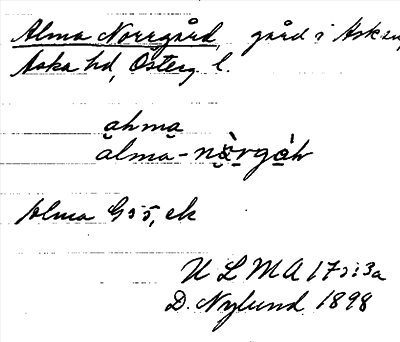 Alma Norrgård, gård i Asken,
Aska hd, Österg l.
ahma
alma-nòrgàh
Alma G55, ek
ULMA 173:3a
D. Nylund 1898